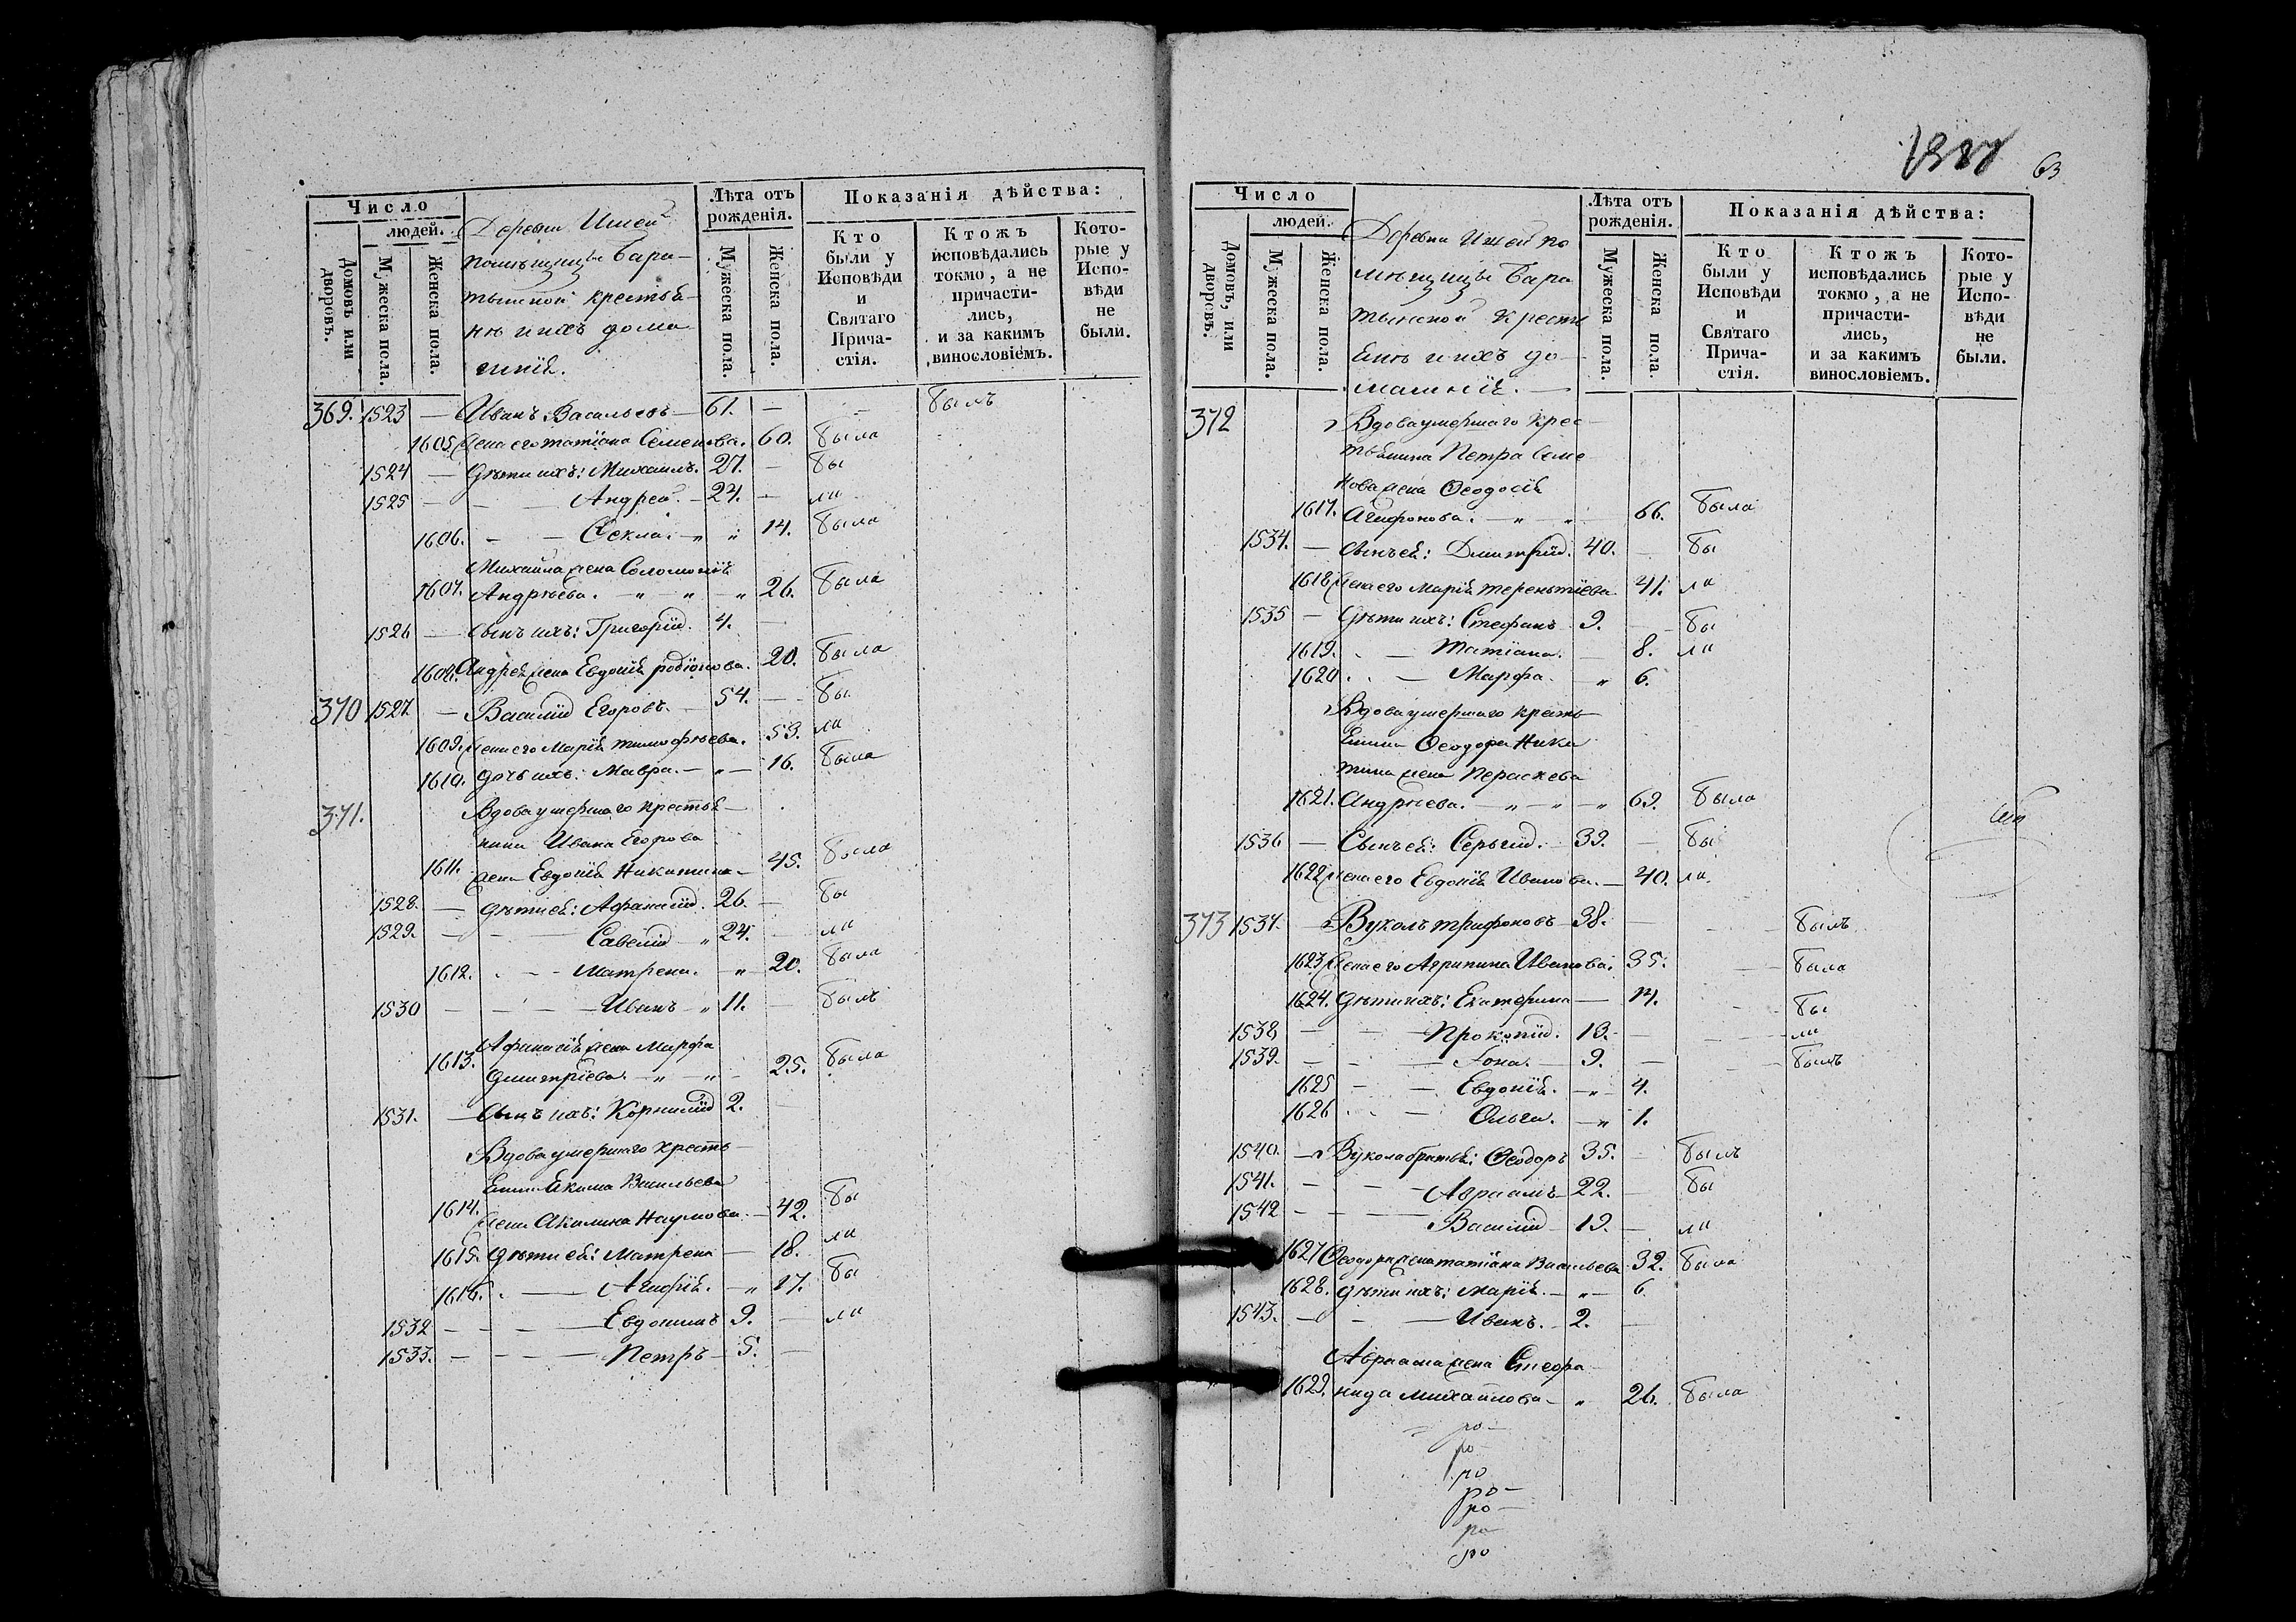 Число
людей.
Домовъ или дворовъ.
Мужеска пола.
Женска пола.
Деревни Ижей
помѣщицы Бара-
тынской крестья-
не и ихъ дома
шнiя.
Лѣта отъ рожденія.
Мужеска пола.
Женска пола.
Показанія дѣйства:
Кто были у Исповѣди и Святаго Прича-стія.
Ктожъ исповѣдались токмо, а не причасти-лись, и за какимъ винословіемъ.
Кото-рые у Испо-вѣди не были.
369. 1523 — Иванъ Васильевъ — 61. — — былъ
1605. Жена его Татiана Семенова. 60. была
1524 — Дѣти ихъ: Михаилъ. 27. — бы
1525 — — Андрей. — 24. — ли
1606. — — Ѳекла. — „ „ 14. была
Михаила жена Соломонiя
1607. Андрѣева. — „ — „ — „ 26. была
1526 — Сынъ ихъ: Григорiй. 4. —
1608. Андрея жена Евдокiя Родiонова. 20. была
370 1527 — Василiй Егоровъ. — 54. — бы
1609. Жена его Марiя Тимофѣева. 53. ли
1610. Дочь ихъ: Мавра. — „ — 16. была
371. Вдова умершаго крестья-
нина Ивана Егорова
1611. жена Евдокiя Никитина — 45. была
1528. — Дѣти ей: Афанасiй. 26. — бы
1529. — — Савелiй „ 24. — ли
1612. — — Матрена. — „ — 20. была
1530 — — — Иванъ — „ 11. — былъ
Афанасiя жена Марфа
1613. Дмитрiева. — „ — „ — 25. была
1531. — Сынъ ихъ: Корнилiй 2. —
Вдова умершаго кресть-
янина Якима Васильева
1614. жена Акилина Наумова. — 42. бы
1615. Дѣти ей: Матрена — 18. ли
1616. — Агафiя. — „ — 17. бы
1532 — — — Евдокимъ 9. — ли
1533. — — — Петръ — 5. —
63
Число
людей.
Домовъ, или дворовъ.
Мужеска пола.
Женска пола.
Деревни Ижей по
мѣщицы Бара
тынской кресть
яне и ихъ до-
машнiя. —
Лѣта отъ рожденія.
Мужеска пола.
Женска пола.
Показанія дѣйства:
Кто были у Исповѣди и Святаго Прича-стія.
Ктожъ исповѣдались токмо, а не причасти-лись, и за какимъ винословіемъ.
Кото-рые у Испо-вѣди не были.
372 Вдова умершаго крес-
тьянина Петра Семе
нова жена Ѳеодосiя
1617. Агафонова. — „ — „ — 66. была
1534. — Сынъ ей: Дмитрiй. 40. — бы
1618 Жена его Марiя Терентiева. 41. ли
1535 — Дѣти ихъ: Стефанъ 9. — бы
1619. — Татiана. — 8. ли
1620 — Марфа. — „ 6.
Вдова умершаго кресть-
янина Ѳеодора Ники
тина жена Параскева
1621. Андрѣева. — „ — „ — „ 69. была
1536 — Сынъ ей: Сергiй. 39. — бы
1622 Жена его Евдокiя Иванова. — 40. ли.
373 1537. — Вуколъ Трифоновъ — 38. — — былъ
1623 Жена его Агрипина Иванова. 35. — была
1624. Дѣти ихъ: Екатерина — 14. — бы
1538 — — Прокопiй. 13. — — ли
1539. — — Iона. — 9. — — былъ
1625 — — Евдокiя. — „ — 4.
1626 — Ольга. — „ 1.
1540. — Вукола братья: Ѳеодоръ 35. — былъ
1541. — — — Авраамъ — 22. — бы
1542 — — — Василiй — 19. — ли
1627 Ѳеодора жена Татiана Васильева 32. была
1628. Дѣти ихъ: Марiя. — „ — 6
1543. — — — Иванъ. — 2. —
Авраама жена Стефа-
1629. нида Михайлова — „ 26. была
ро —
ро —
ро
ро —
ро —
ро
ро